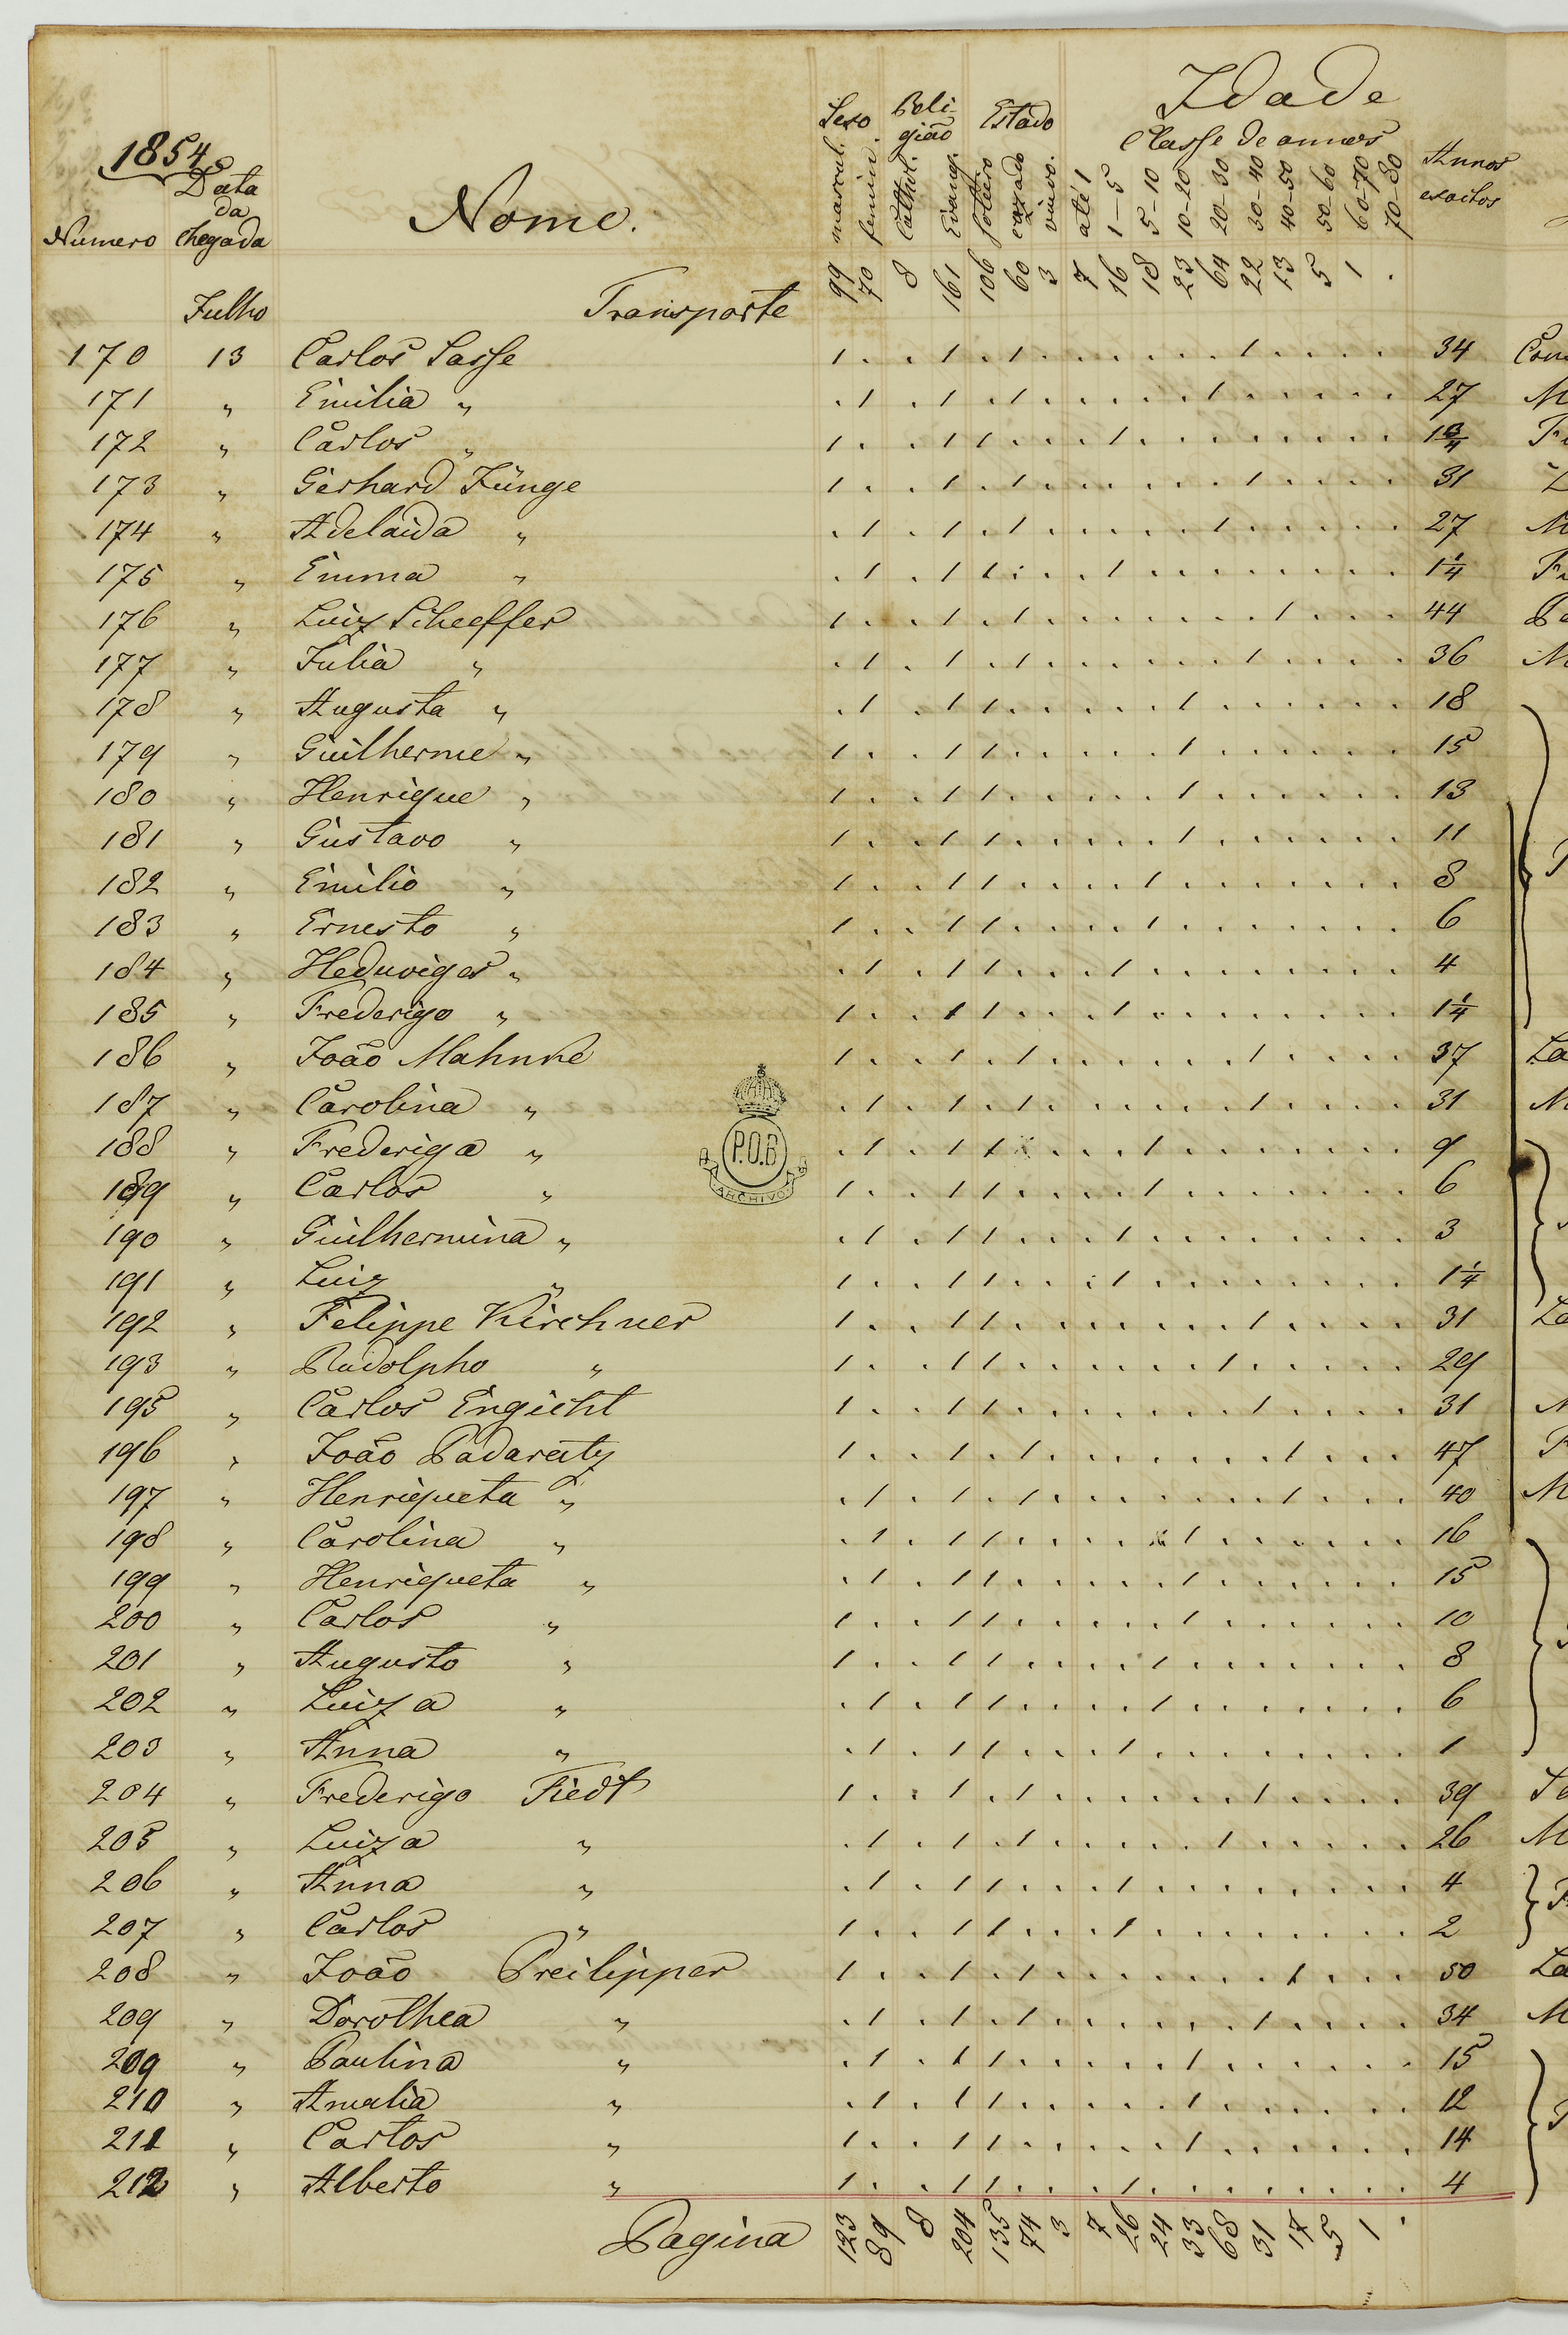 1854
Data da chegada
Numero
Nome.
Sexo
Religião
Estado
Idade
Classe de annos
Annos exactos
mascul. femin. Cathol. Evang. soltero cazado viuvo. até 1 1–5 5–10 10–20 20–30 30–40 40–50 50–60 60–70 70–80
Julho Transporte 99 70 8 161 106 60 3 7 16 18 23 64 22 13 5 1 .
170 13 Carlos Sasse 1 . . 1 . 1 . . . . . . 1 . . . . 34
171 " Emilia " . 1 . 1 . 1 . . . . . 1 . . . . . 27
172 " Carlos " 1 . . 1 1 . . . 1 . . . . . . . . 1 3/4
173 " Gerhard Jünge 1 . . 1 . 1 . . . . . . 1 . . . . 31
174 " Adelaida " . 1 . 1 . 1 . . . . . 1 . . . . . 27
175 " Emma " . 1 . 1 1 . . . 1 . . . . . . . . 1 1/4
176 " Luiz Scheffer 1 . . 1 . 1 . . . . . . . 1 . . . 44
177 " Julia " . 1 . 1 . 1 . . . . . . 1 . . . . 36
178 " Augusta " . 1 . 1 1 . . . . . 1 . . . . . . 18
179 " Guilherme " 1 . . 1 1 . . . . . 1 . . . . . . 15
180 " Henrique " 1 . . 1 1 . . . . . 1 . . . . . . 13
181 " Gustavo " 1 . . 1 1 . . . . . 1 . . . . . . 11
182 " Emilio " 1 . . 1 1 . . . . 1 . . . . . . . 8
183 " Ernesto " 1 . . 1 1 . . . . 1 . . . . . . . 6
184 " Heduviges " . 1 . 1 1 . . . 1 . . . . . . . . 4
185 " Frederigo " 1 . . 1 1 . . . 1 . . . . . . . . 1 1/4
186 " João Mahnke 1 . . 1 . 1 . . . . . . 1 . . . . 37
187 " Carolina " . 1 . 1 . 1 . . . . . . 1 . . . . 31
188 " Frederiga " . 1 . 1 1 . . . . 1 . . . . . . . 9
189 " Carlos " 1 . . 1 1 . . . . 1 . . . . . . . 6
190 " Guilhermina " . 1 . 1 1 . . . 1 . . . . . . . . 3
191 " Luiz " 1 . . 1 1 . . . 1 . . . . . . . . 1 1/4
192 " Felippe Kirchner 1 . . 1 1 . . . . . . . 1 . . . . 31
193 " Rudolpho " 1 . . 1 1 . . . . . . 1 . . . . . 29
195 " Carlos Engicht 1 . . 1 1 . . . . . . . 1 . . . . 31
196 " João Padaratz 1 . . 1 . 1 . . . . . . . 1 . . . 47
197 " Henriqueta " . 1 . 1 . 1 . . . . . . . 1 . . . 40
198 " Carolina " . 1 . 1 1 . . . . . 1 . . . . . . 16
199 " Henriqueta " . 1 . 1 1 . . . . . 1 . . . . . . 15
200 " Carlos " 1 . . 1 1 . . . . . 1 . . . . . . 10
201 " Augusto " 1 . . 1 1 . . . . 1 . . . . . . . 8
202 " Luiza " . 1 . 1 1 . . . . 1 . . . . . . . 6
203 " Anna " . 1 . 1 1 . . . 1 . . . . . . . . 1
204 " Frederigo Fiedt 1 . . 1 . 1 . . . . . . 1 . . . . 39
205 " Luiza " . 1 . 1 . 1 . . . . . 1 . . . . . 26
206 " Anna " . 1 . 1 1 . . . 1 . . . . . . . . 4
207 " Carlos " 1 . . 1 1 . . . 1 . . . . . . . . 2
208 " João Preilipper 1 . . 1 . 1 . . . . . . . 1 . . . 50
209 " Dorothea " . 1 . 1 . 1 . . . . . . 1 . . . . 34
209 " Paulina " . 1 . 1 1 . . . . . 1 . . . . . . 15
210 " Amalia " . 1 . 1 1 . . . . . 1 . . . . . . 12
211 " Carlos " 1 . . 1 1 . . . . . 1 . . . . . . 14
212 " Alberto " 1 . . 1 1 . . . 1 . . . . . . . . 4
Pagina 123 89 8 204 135 74 3 7 26 24 33 68 31 17 5 1 .
P.O.B
ARCHIVO